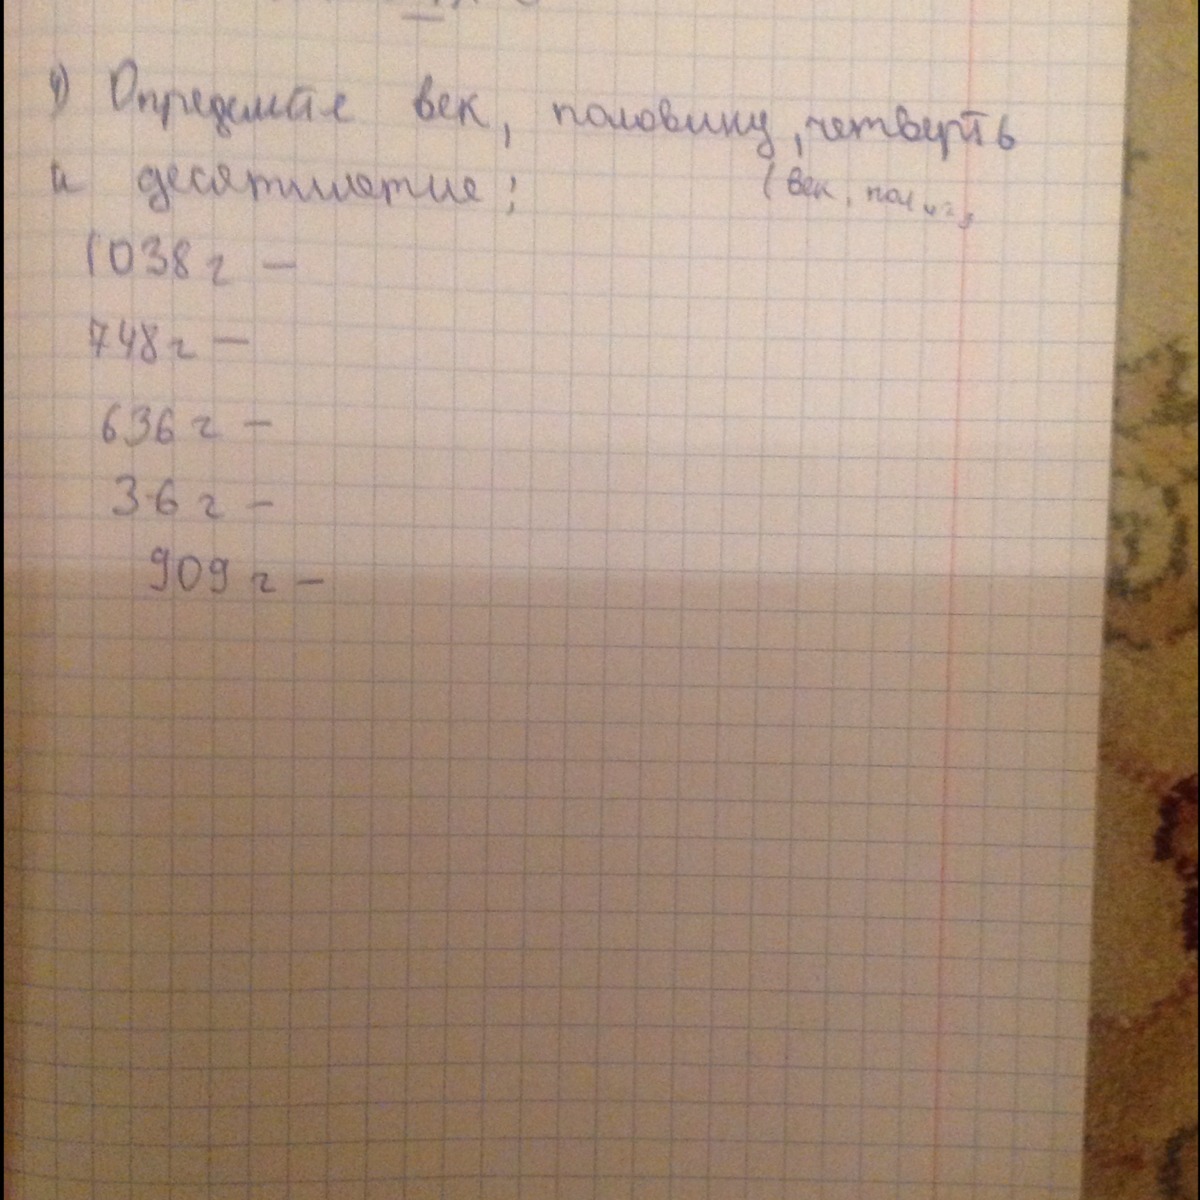 1) Определите век, половину, четверть
и десятилетие:
(век, пол
1038 г –
748 г –
636 г –
36 г –
909 г –